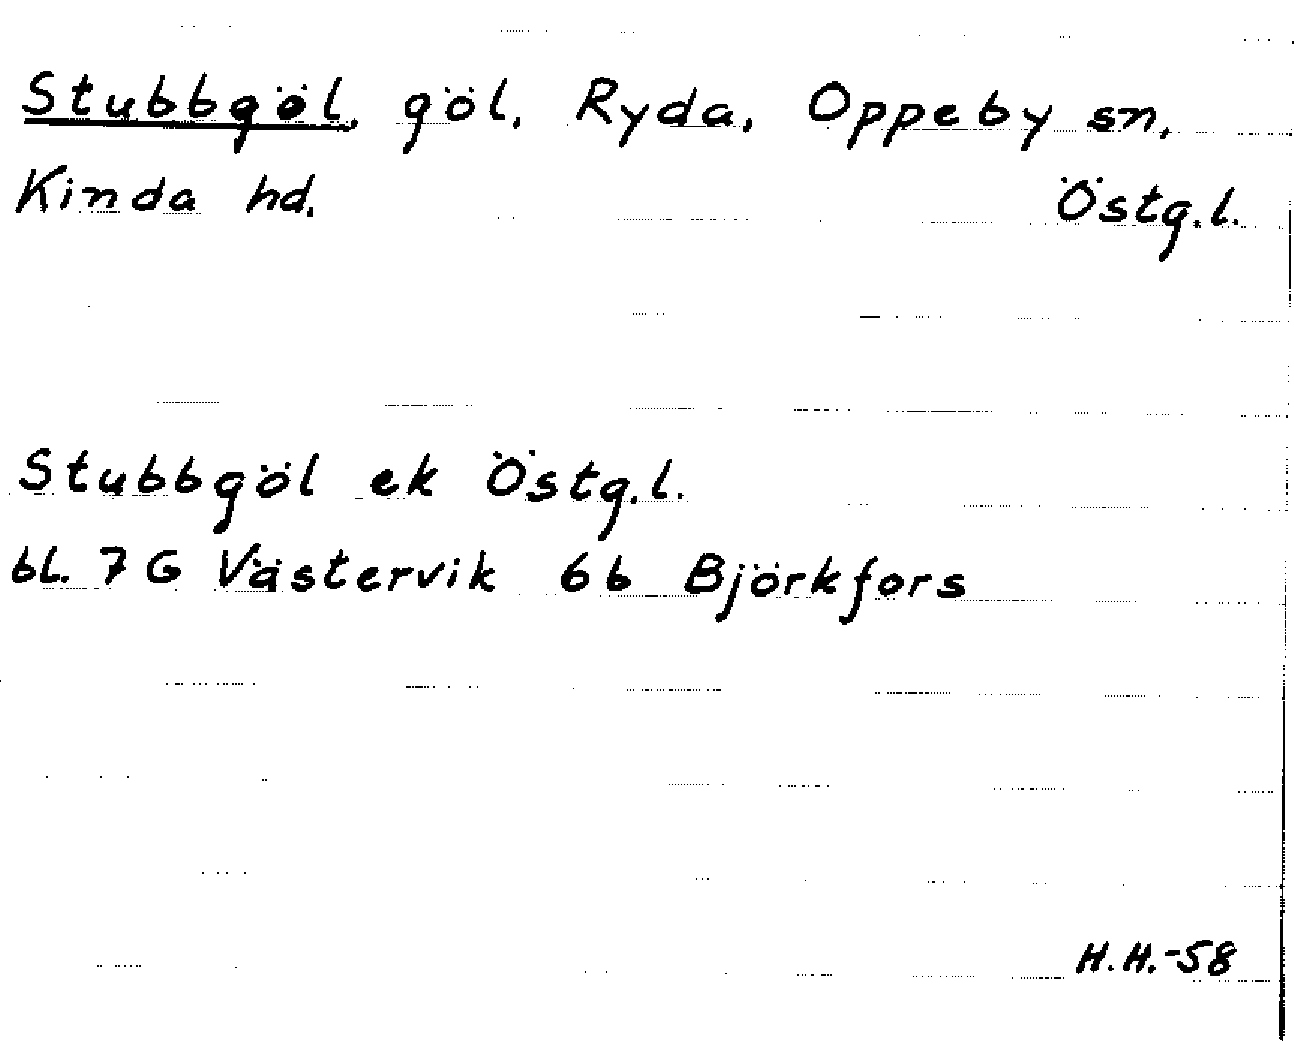 Stubbgöl, göl, Ryda, Oppeby sn,
Kinda hd. Östg.l.
Stubbgöl ek Östg.l.
bl. 7 G Västervik 6b Björkfors
H.H.-58